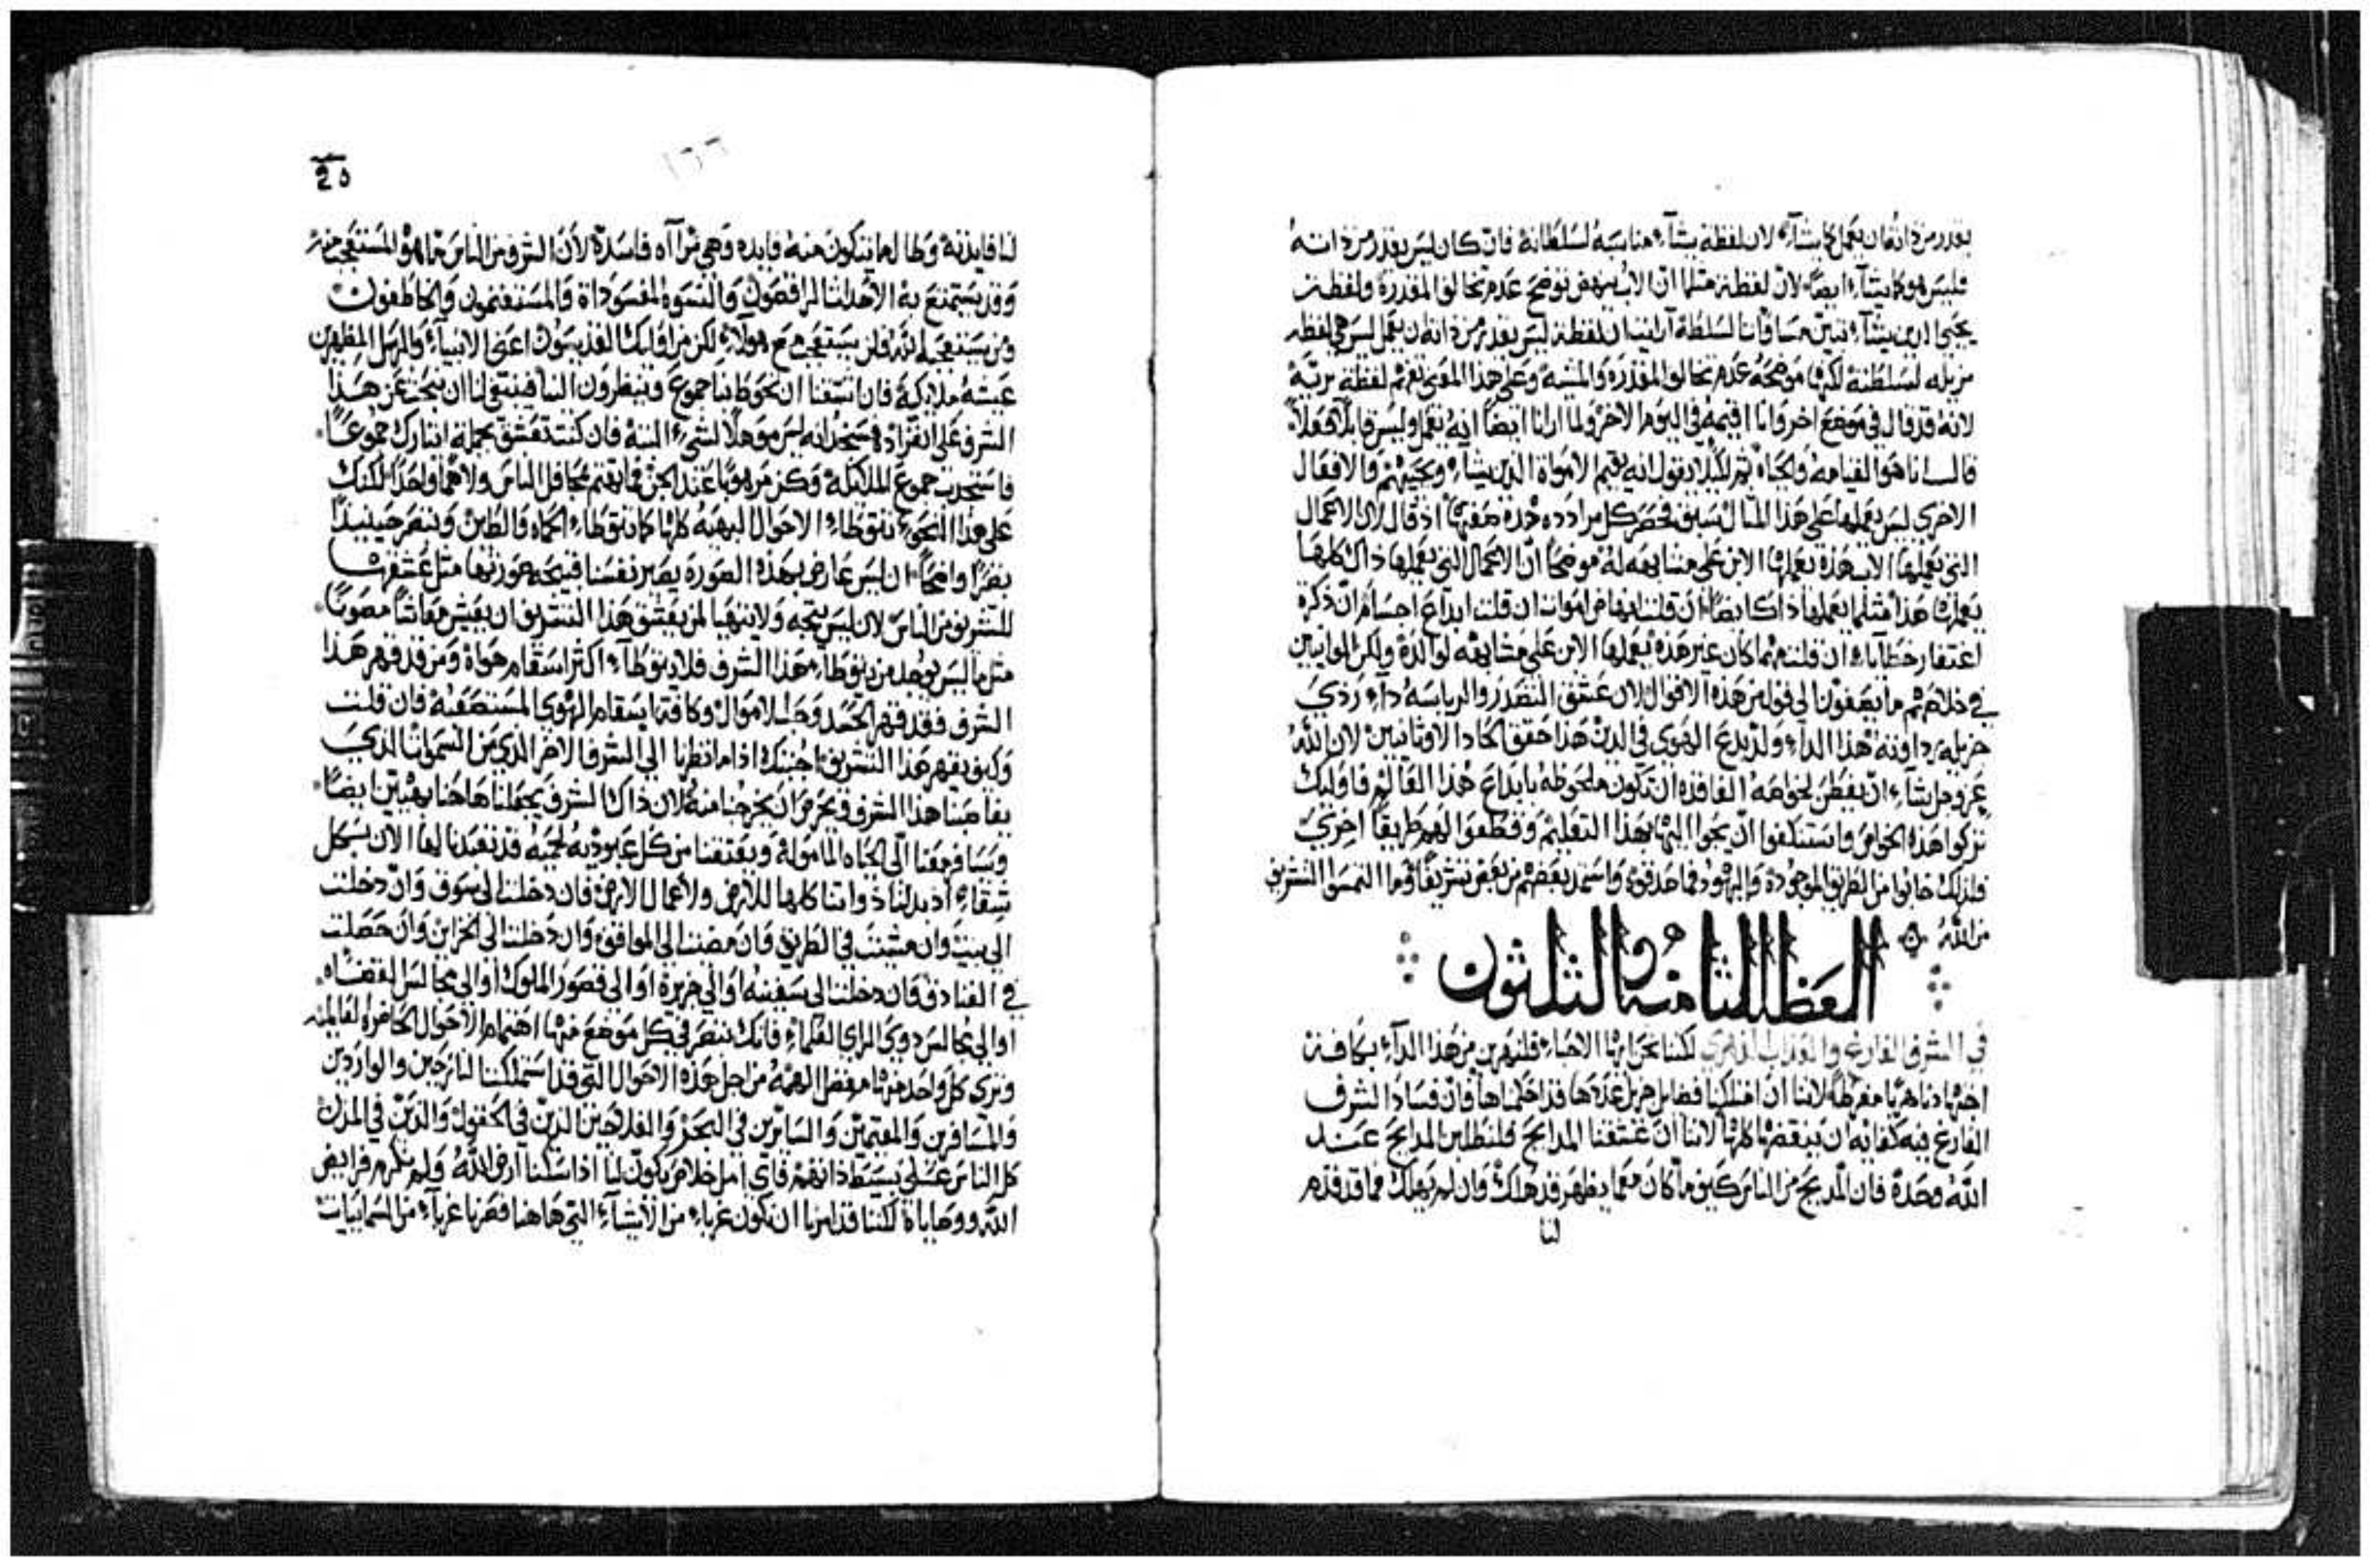 يقدر من ذاته ان يعمل كما يشآء لان لفظة يشآء مناسبة لسلطانه فان كان ليس يقدر من ذاته
فليس هو كما يشآء ايضاً لان لفظته مثلما ان الاب ينهض توضح عدم تخالف المقدرة ولفظة
يحيي الذين يشآء تبين مساواة السلطة آرايت ان لفظة ليس يقدر من ذاته ان يعمل ليس هي لفظه
مزيله لسلطته لكنها موضحة عدم تخالف المقدرة والمشية وعلى هذا المعنى تفهم لفظة يريه
لانه قد قال في موضع اخر وانا اقيمه في اليوم الاخر ولما ارانا ايضاً انه يعمل وليس قابلاً فعلاً
قال انا هو القيامه والحياه ثم ليلا نقول انه يقيم الاموات الذين يشآء ويحييهم والافعال
الاخرى ليس يعملها على هذا المثال سبق فحصر كل مرادده هذه معها اذ قال لان الاعمال
التي يعملها الاب هذه يعملها الابن على مشابهه له موضحاً ان الاعمال التي يعملها ذاك كلها
يعملها هذا مثلما يعملها ذاك ايضاً ان قلت انهاض اموات ان قلت ابداع اجسام ان ذكرة
اغتفار خطايا ان قلت مهما كان غير هذه يعملها الابن على مشابهه لوالده ولكن المواتيين
في خلاصهم ما يصغون الى قول من هذه الاقوال لان عشق التصدر والرياسه دآء ردي
جزيله هذا الدآء ولد بدع الهوى في الدين هذا حقق الحاد الاوثانيين لان الله
عز وجل شآء ان خواصه الفاقده ان تكون ملحوظه بابداع هذا العالم فاوليك
تركوا هذه الخواص واستنكفوا ان يجوا اليها بهذا التعليم وقطعوا لهم طريقاً اخرى
فلذلك خابوا من الطريق الموجودة واليهود فما صدقوه واستمد بعضهم من بعض تشريفاً وما التمسوا التشريف
من الله
العظه الثامنه والثلثون
في الشرف الفارغ والعذاب الدهري لكننا نحن ايها الاحباء فلنهرب من هذا الدآء بكافة
اجتهادنا هرباً مفرطاً لاننا ان امتلكنا فضايل جزيل عددها قد احكمناها فان فساد الشرف
الفارغ فيه كفايه ان ينقضها كلها لاننا ان عشقنا المدايح فلنطلبن المدايح عنـد
الله وحده فان المديح من الناس كيف ما كان معما يظهر قد هلك وان لم يهلك فما قد قدم
لنا
٢٥
١٦٦
لنا فايدته وطالما نتكون منه فايده وهي من آراه فاسدة لان الشرف من الناس ما هو المستعجب منه
وقد يستمتع به الاحداث الراقصون والنسوه المفسودات والمستغنمون والخاطفون
ومن يستعجبه الله فلن يستعجب مع هولآء لكن مع اوليك القديسون اعنى الانبياء والرسل المظهرين
عيشه ملاكية فان اشتهينا ان تحوط بنا جموع وينظرون الينا فينبغي لنا ان نبحث عن هـذا
الشرف على انفراده فستجد انه ليس موهلاً لشيء البتة فان كنت تعشق بجملة ايثارك جموعاً
فاستجذب جموع الملايكة وكن مرهوباً عند الجن فما تهتم محافل الناس ولا هماً واحداً لكنك
على هذا النحو تتوطاء الاحوال البهيه كلها كما تتوطاء الحماه والطين وتبصر حينيذ
بصراً واضحاً ان ليس عارض بهذه الصورة يصير نفسنا قبيحه صورتها مثل عشقها
للتشريف من الناس لان ليس يتجه ولا يتهيا لمن يعشق هذا التشريف ان يعيش معاشاً مصوناً
مثل ما ليس يوجد من يتوطاء هذا الشرف فلا يتوطآء اكثر اسقام هواة ومن قد قهر هـذا
الشرف فقد قهر الحسد وحب الاموال وكافة اسقام الهوى المستصعبه فان قلت
وكيف يقهر هذا التشريف اجبتك اذا ما نظرنا الى الشرف الاخر الذي من السموات الذي
يقاصينا هذا الشرف ويحرص ان يخرجنا منه لان ذاك الشرف يجعلنا هاهنا بهيين ايضاً
ويسافر معنا الى الحياه المامولة ويعتقنا من كل عبوديه لحميه قد تعبدنا لها الان بـكل
شقاء اذ بدلنا ذواتنا كلها للارض ولاعمال الارض فان دخلت الى سوق وان دخلت
الى بيت وان مشيت في الطريق وان مضيت الى المواقف وان دخلت الى الخزاين وان حصلت
في الفنادق وان دخلت الى سفينه او الى جزيرة او الى قصور الملوك او الى مجالس القضاه
او الى مجالس ذوى الراى العلماء فانك تبصر في كل موضع منها اهتمام الاحوال الحاضرة لعالمه
وترى كل واحد منها مفضل الهمه من اجل هذه الاحوال التي قد استملكت الخارجين والواردين
والمسافرين والمقيمين والسايرين في البحر والفلاحين الذين في الحقول والذين في المدن
كل الناس على بسيط ذاتهم فاى امل خلاص يكون لنا اذا سكنا ارض الله ولم نكرم فرايض
الله ووصاياه لكننا قد امرنا ان نكون غرباء من الاشيآء التي هاهنا فصرنا غربآء من السمايات